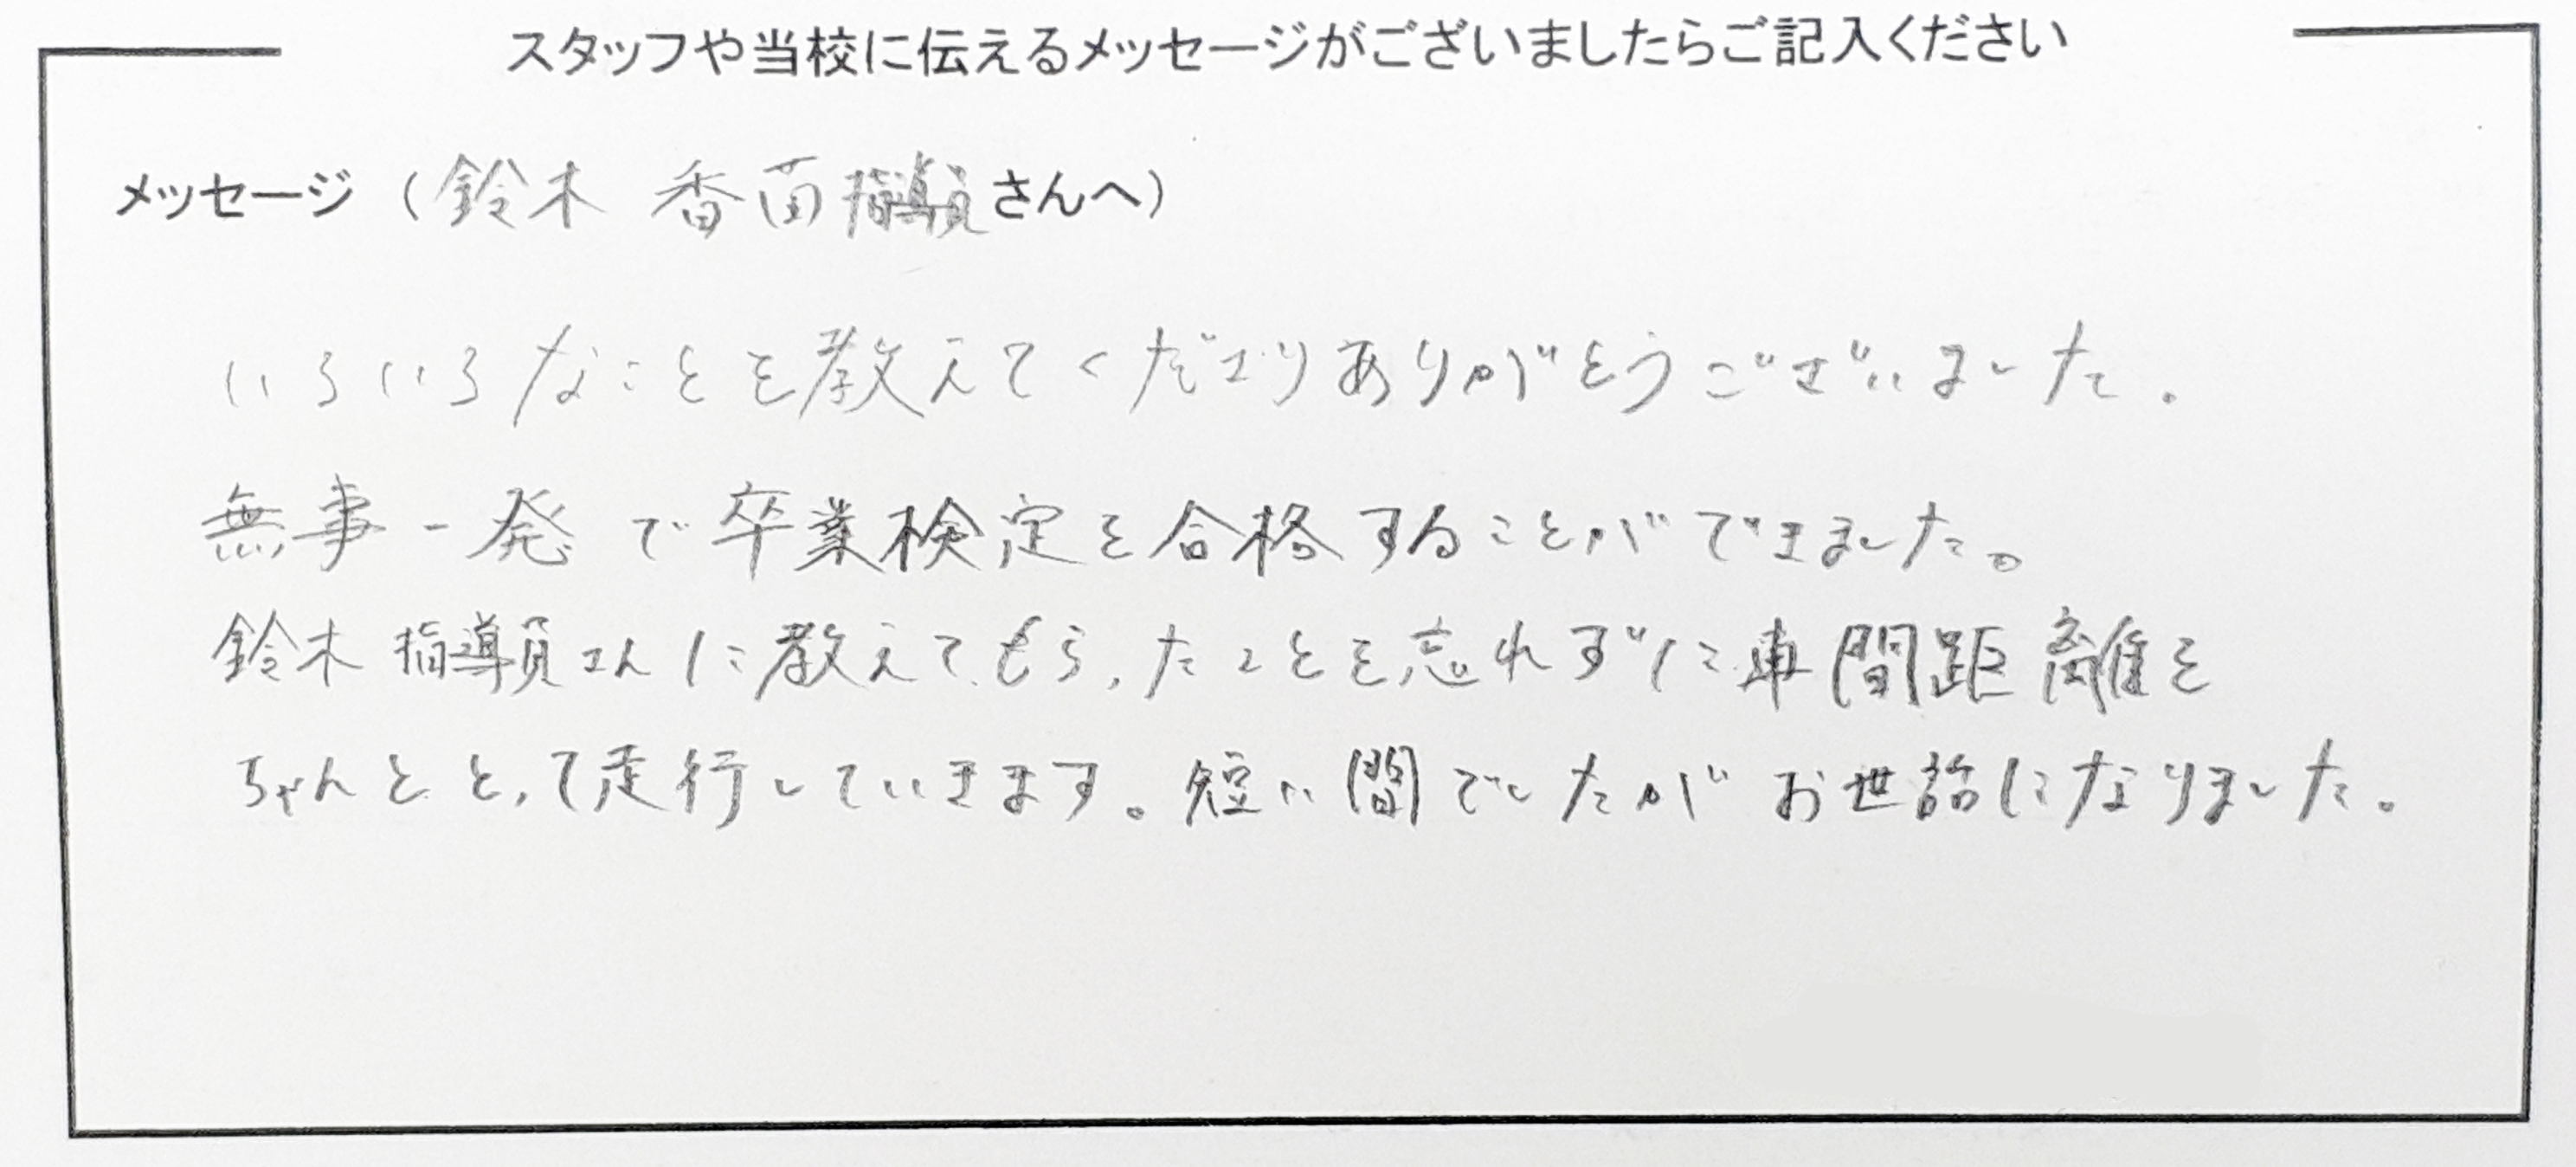 スタッフや当校に伝えるメッセージがございましたらご記入ください
メッセージ（鈴木 香苗指導員さんへ）
いろいろなことを教えてくださりありがとうございました。
無事一発で卒業検定を合格することができました。
鈴木指導員さんに教えてもらったことを忘れずに車間距離を
ちゃんととって走行していきます。短い間でしたがお世話になりました。